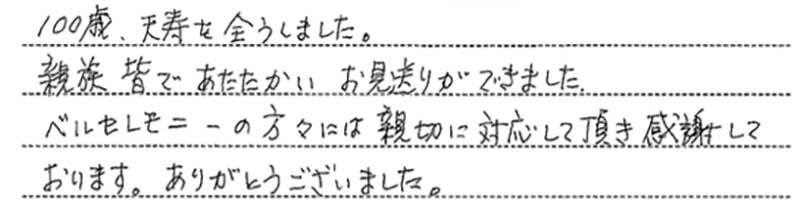 100歳、天寿を全うしました。
親族 皆で あたたかい お見送りができました.
ベルセレモニーの方々には 親切に対応して頂き 感謝して
おります。ありがとうございました。